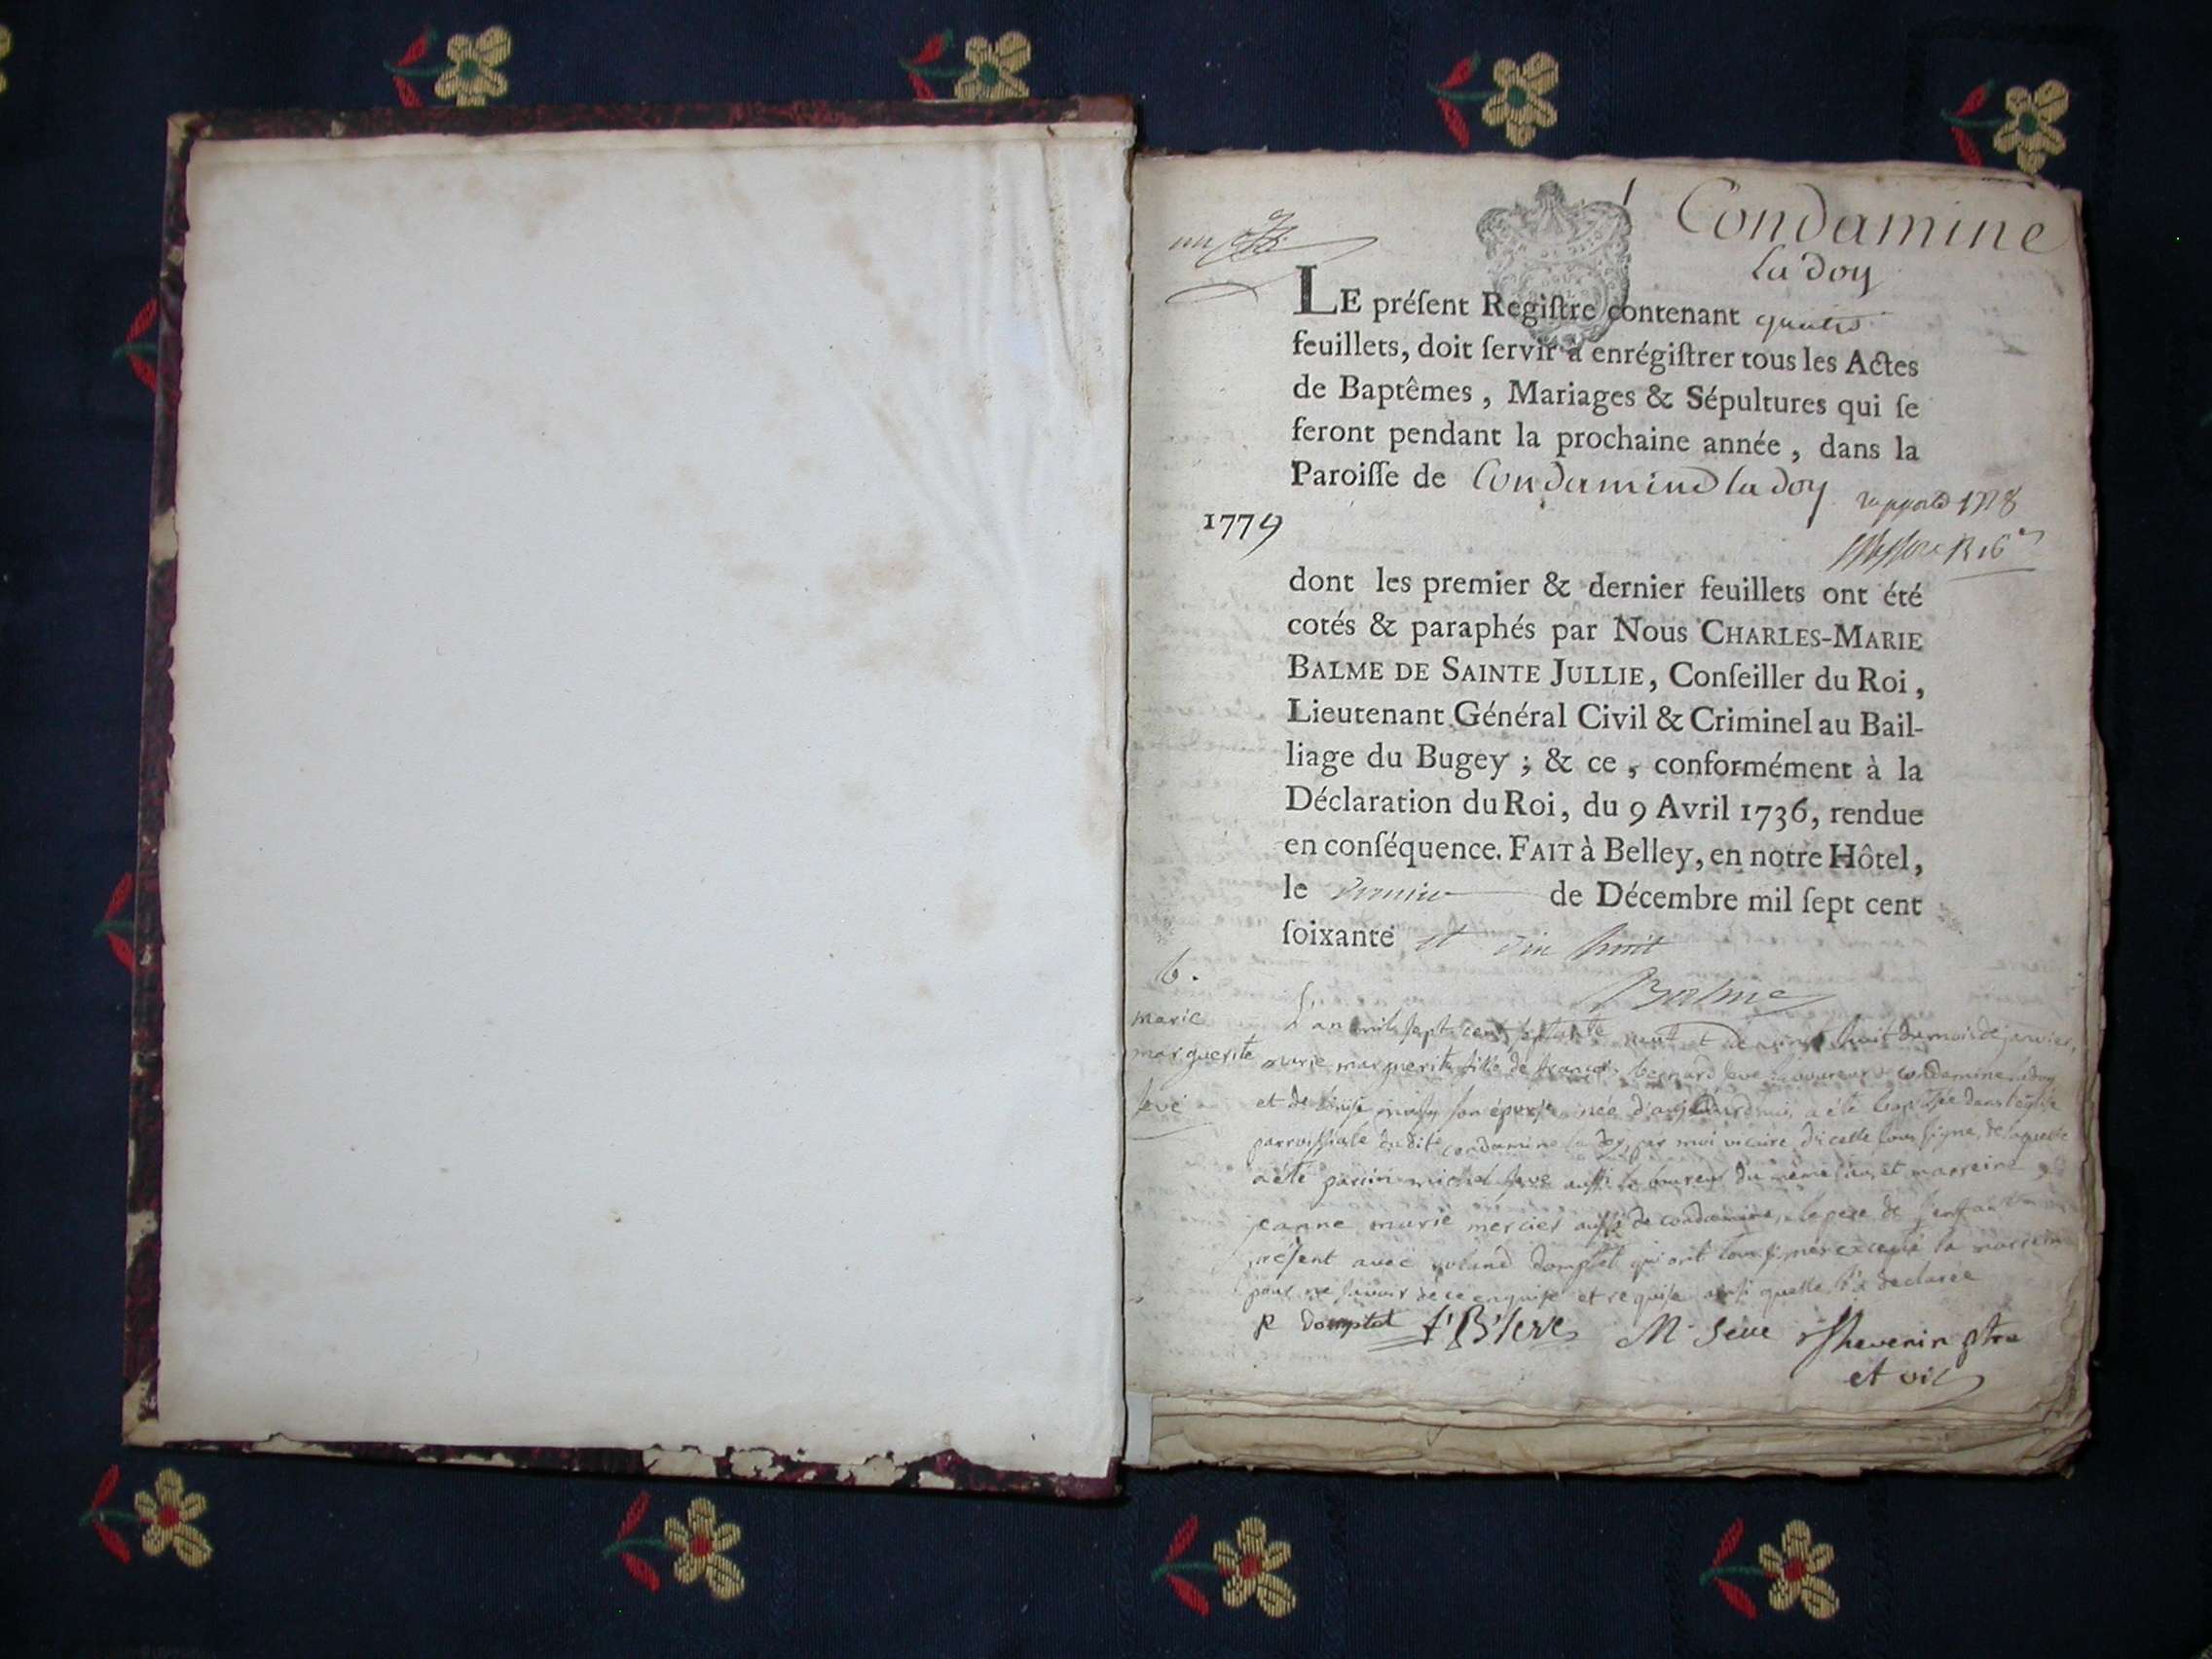 Condamine
la doy
LE préſent Regiſtre contenant quatre
feuillets, doit ſervir à enrégiſtrer tous les Actes
de Baptêmes, Mariages & Sépultures qui ſe
feront pendant la prochaine année, dans la
Paroiſſe de Condamine la doy
1779
dont les premier & dernier feuillets ont été
cotés & paraphés par Nous CHARLES-MARIE
BALME DE SAINTE JULLIE, Conſeiller du Roi,
Lieutenant Général Civil & Criminel au Bail-
liage du Bugey; & ce, conformément à la
Déclaration du Roi, du 9 Avril 1736, rendue
en conſéquence. FAIT à Belley, en notre Hôtel,
le dernier de Décembre mil ſept cent
ſoixante et dix huit
Balme
b.
marie
marguerite
seve
L'an mil sept cent septante neuf et le vingt huit du mois de janvier,
marie marguerite fille de françois bernard seve laboureur de condamine la doy
et de son épouse née d'aujourdhui a été baptisée dans l'église
parroissiale dudit condamine la doy, par moi vicaire d'icelle soussigné, de laquelle
a été parrin michel seve aussi laboureur du même lieu et marreine
jeanne marie mercier aussi de condamine, le pere de l'enfant
présent avec roland domptet qui ont soussignés excepté la marreine
pour ne savoir de ce enquise et requise ainsi quelle l'a declarée
R domptet f. B. seve M. Seve Thevenin ptre
et vic